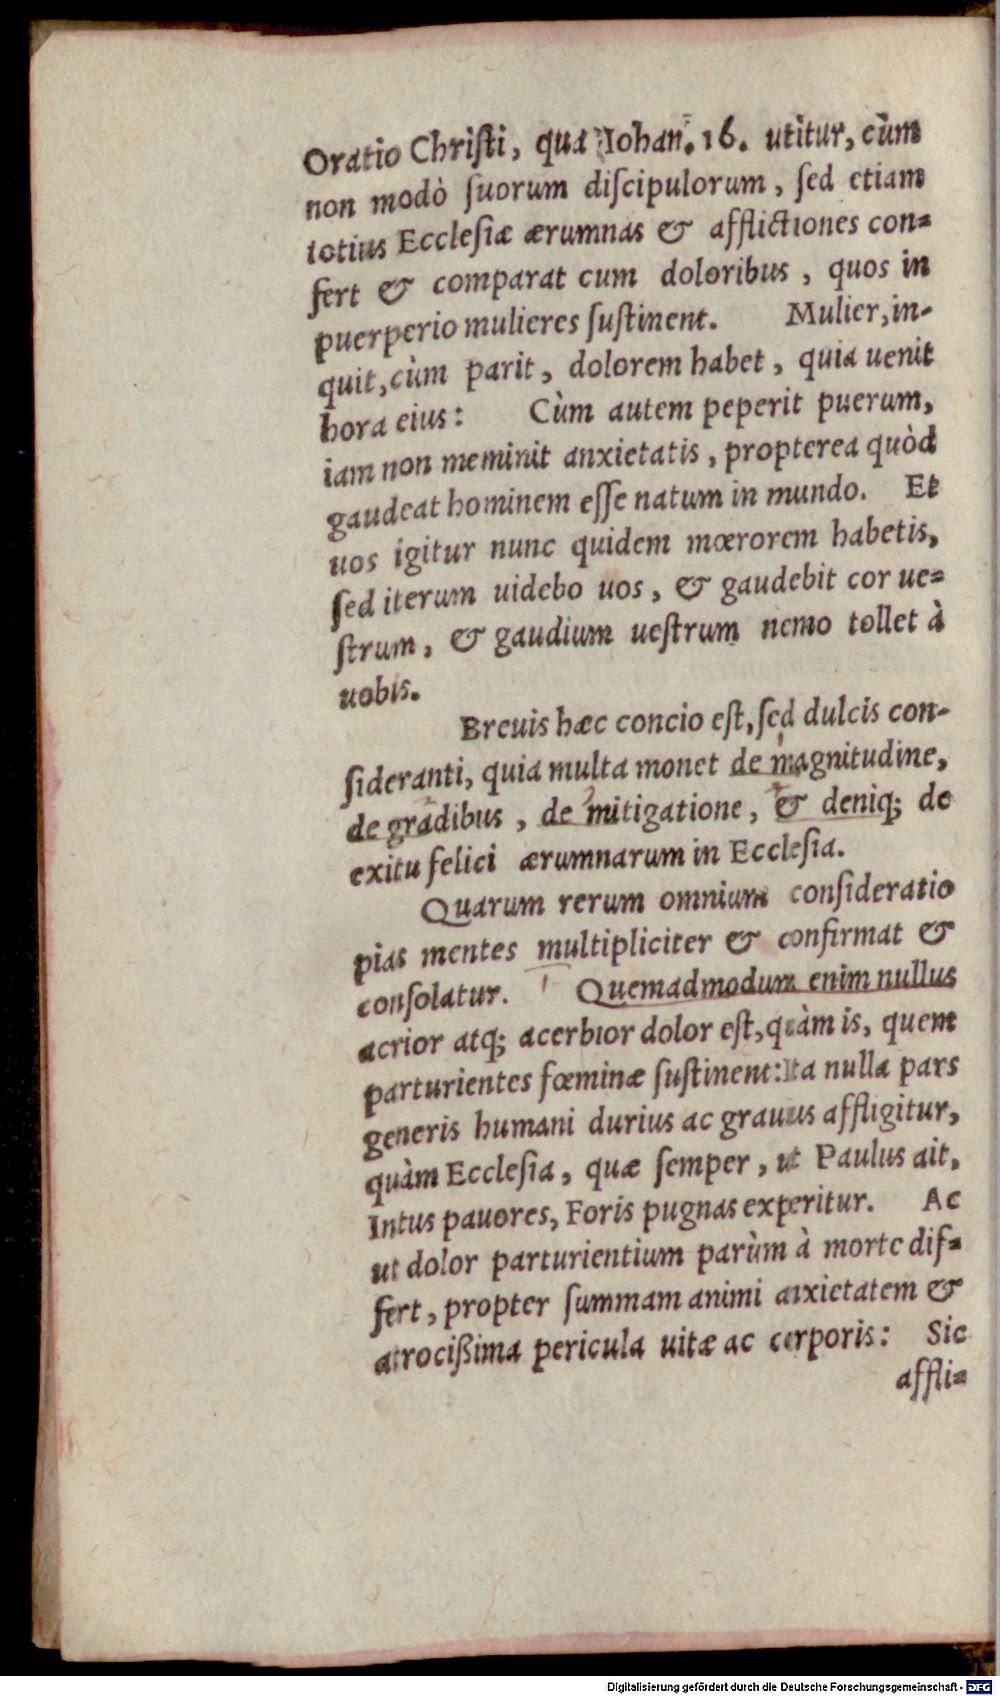 Oratio Christi, qua Iohan. 16. utitur, cùm
non modò ſuorum diſcipulorum, ſed etiam
totius Eccleſiæ ærumnas & afflictiones con=
fert & comparat cum doloribus, quos in
puerperio mulieres ſuſtinent. Mulier, in-
quit, cùm parit, dolorem habet, quia uenit
hora eius: Cùm autem peperit puerum,
iam non meminit anxietatis, propterea quòd
gaudeat hominem eſſe natum in mundo. Et
uos igitur nunc quidem mœrorem habetis,
ſed iterum uidebo uos, & gaudebit cor ue=
ſtrum, & gaudium ueſtrum nemo tollet à
uobis.
Breuis hæc concio eſt, ſed dulcis con-
ſideranti, quia multa monet de magnitudine,
de gradibus, de mitigatione, & deniq; de
exitu felici ærumnarum in Eccleſia.
Quarum rerum omnium conſideratio
pias mentes multipliciter & confirmat &
conſolatur. Quemadmodum enim nullus
acrior atq; acerbior dolor eſt, quàm is, quem
parturientes fœminæ ſuſtinent: Ita nulla pars
generis humani durius ac grauius affligitur,
quàm Eccleſia, quæ ſemper, ut Paulus ait,
Intus pauores, Foris pugnas experitur. Ac
ut dolor parturientium parùm à morte dif=
fert, propter ſummam animi anxietatem &
atrocißima pericula uitæ ac corporis: Sic
affli=
Digitalisierung gefördert durch die Deutsche Forschungsgemeinschaft - DFG